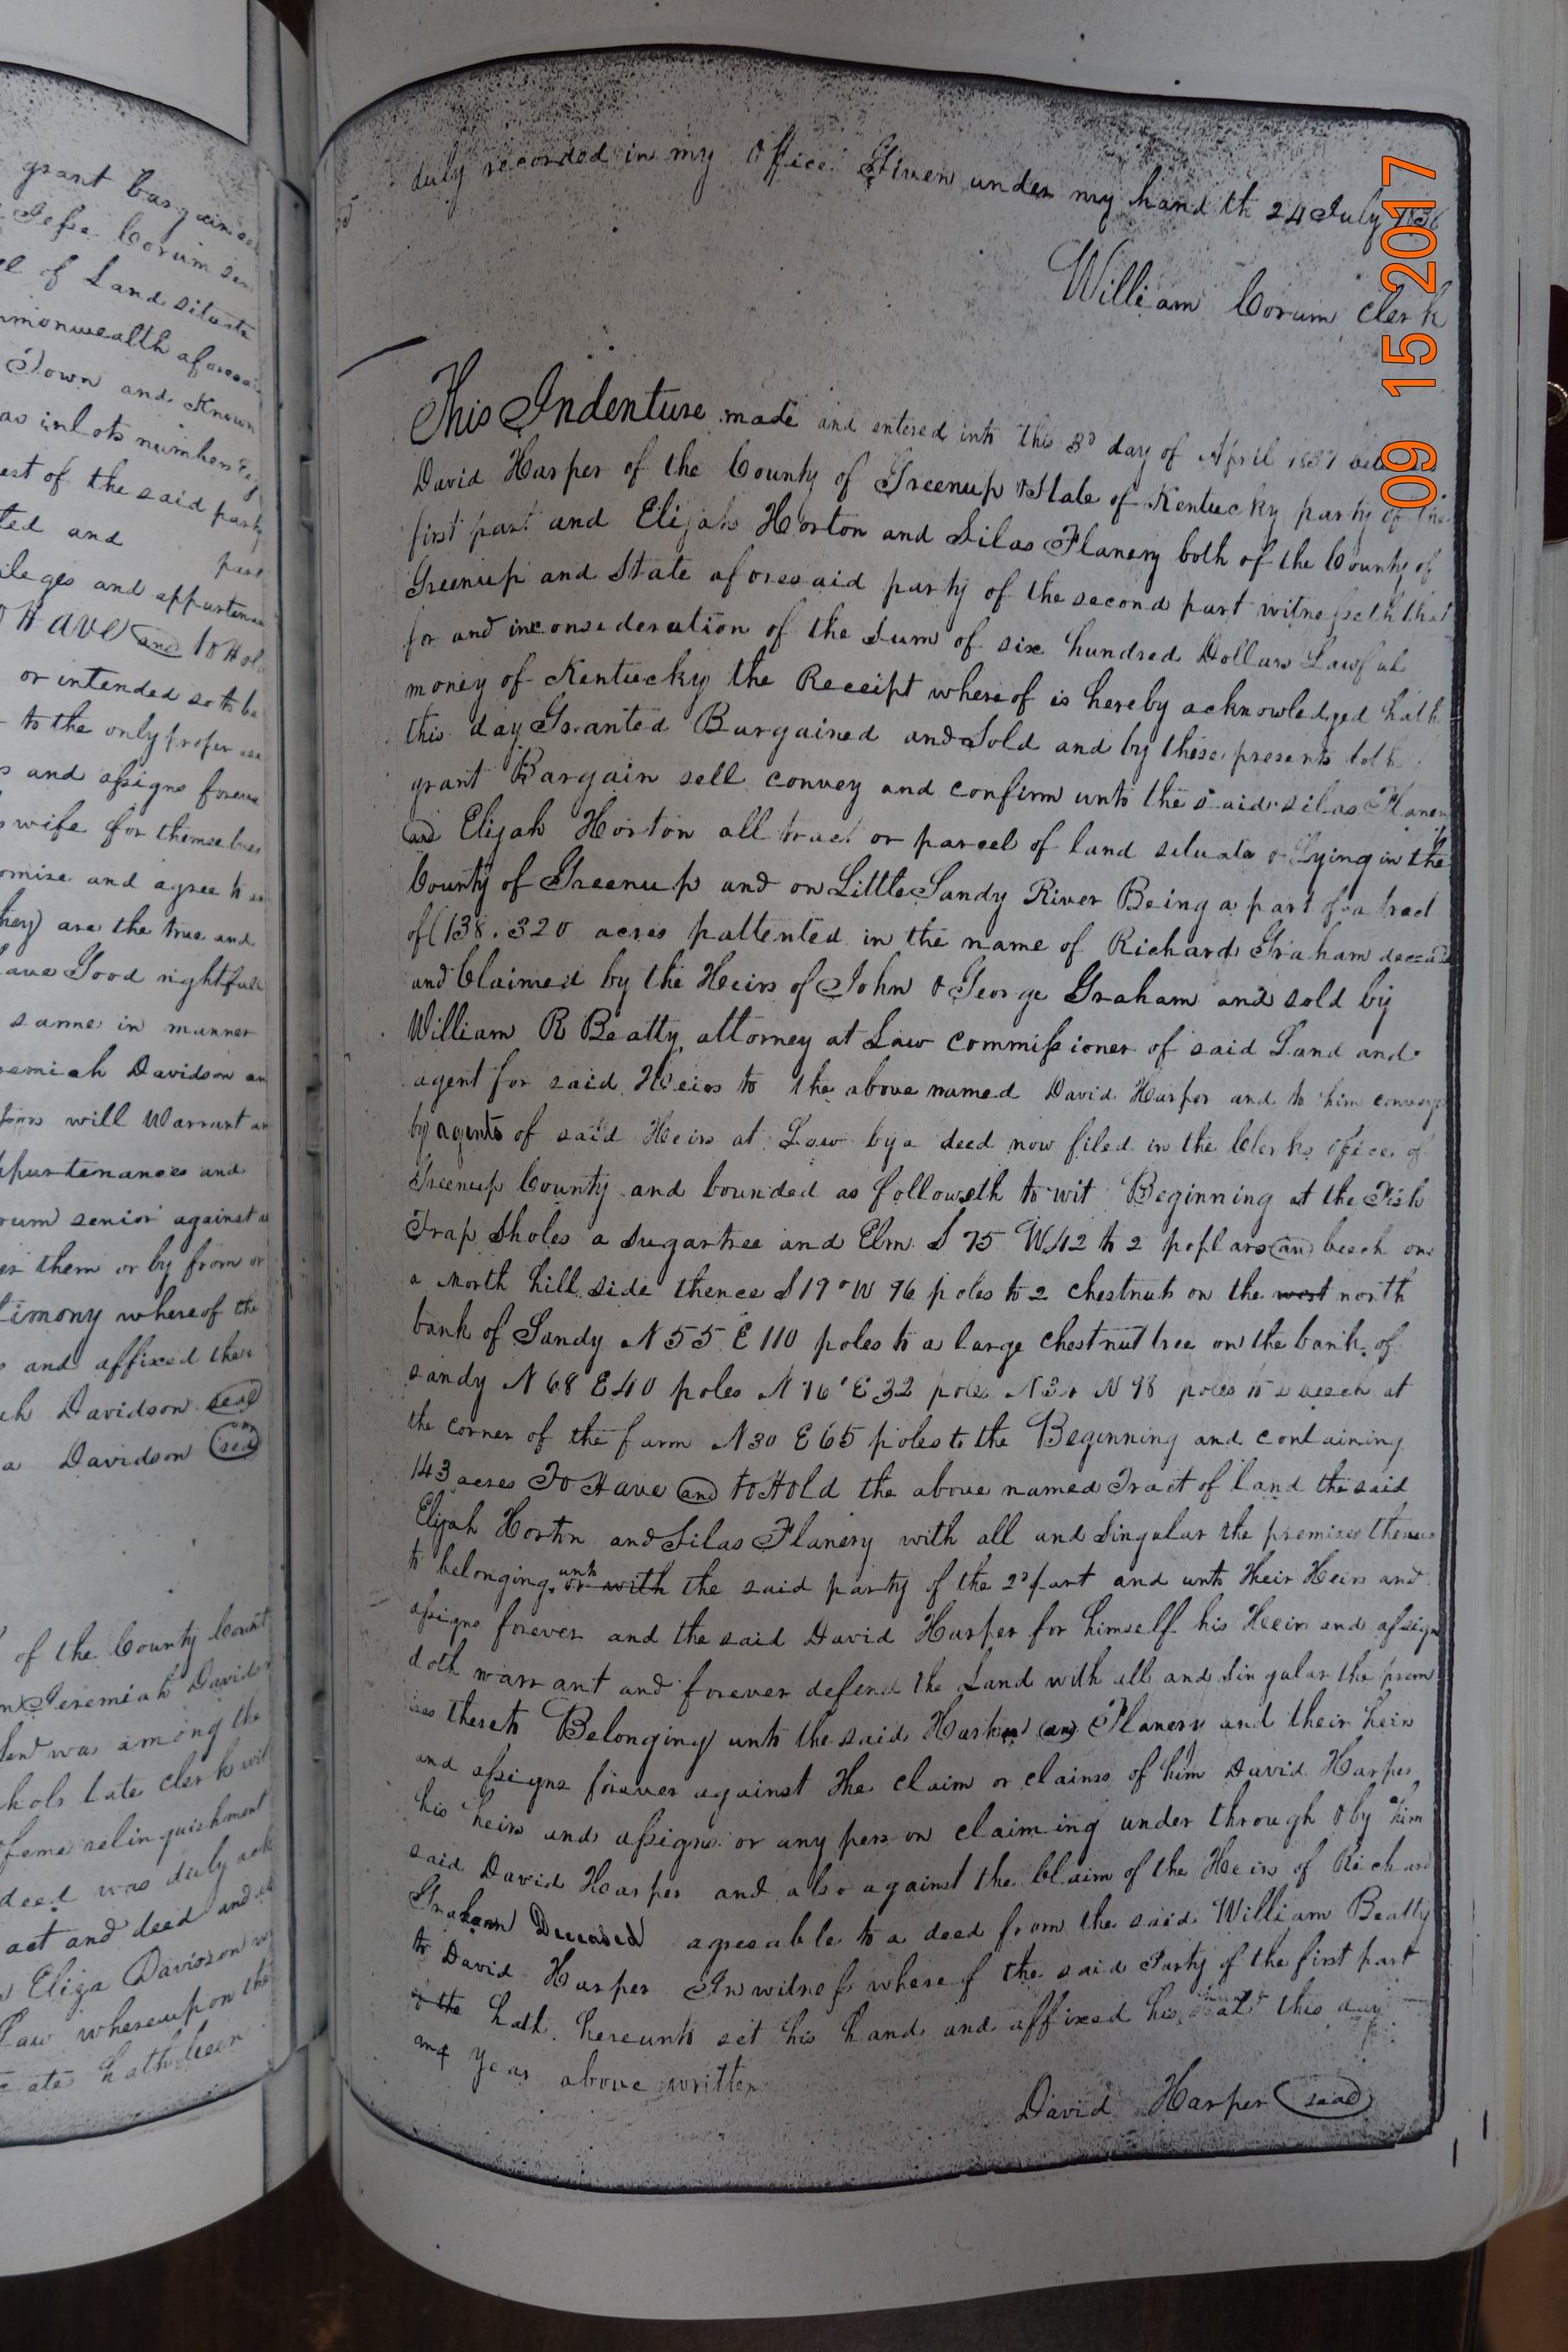 grant bargain
Jesse Corum sen
of Land situate
mmonwealth aforesai
Town and Known
as inlots numbers
est of the said party
ted and part
ileges and appurtena
Have and to Hol
or intended so to be
to the only proper use
and assigns forever
wife for themselves
omise and agree to
they) are the true and
ave Good right full
same in manner
remiah Davidson an
will Warrant an
ppurtenances and
rum senior against
them or by from or
timony whereof the
and affixed their
ch Davidson seal
a Davidson seal
of the County Court
Jeremiah Davidson
was among the
hols late clerk
feme relinquishment
deed was duly ack
act and deed and
Eliza Davidson
Law whereupon the
cate hath been
duly recorded in my Office Given under my hand th 24 July 1836
William Corum Clerk
This Indenture made and entered into this 3d day of April 1837
David Harper of the County of Greenup & State of Kentucky party of the
first part and Elijah Horton and Silas Flanery both of the County of
Greenup and State aforesaid party of the second part witnesseth that
for and inconsederation of the Sum of six hundred Dollars Lawful
money of Kentucky the Receipt whereof is hereby acknowledged hath
this day Granted Bargained and Sold and by these presents doth
grant Bargain sell convey and confirm unto the said silas Flanery
and Elijah Horton all tract or parcel of land situate & Lying in the
County of Greenup and on Little Sandy River Being a part of a tract
of (138.320 acres pattented in the name of Richard Graham
and Claimed by the Heirs of John & George Graham and sold by
William R Beatty attorney at Law commissioner of said Land and
agent for said Heirs to the above named David Harper and to him convey
by agents of said Heirs at Law by a deed now filed in the Clerks office of
Greenup County and bounded as followeth to wit Beginning at the Fish
Trap Sholes a Sugartree and Elm S 75 W 42 to 2 poplars and beech on
a North hill side thence S 19° W 96 poles to 2 chestnuts on the west north
bank of Sandy N 55 E 110 poles to a large chestnut tree on the bank of
sandy N 68 E 40 poles N 76° E 32 poles N 98 poles to a beech at
the corner of the farm N 30 E 65 poles to the Beginning and containing
143 acres To Have and to Hold the above named Tract of land the said
Elijah Horton and Silas Flanery with all and Singular the premises
to belonging or with unto the said party of the 2d part and unto Their Heirs and
assigns forever and the said David Harper for himself his Heirs and assigns
doth warrant and forever defend the Land with all and Singular the prem
ises thereto Belonging unto the said and Flanery and their heirs
and assigns forever against the claim or claims of him David Harper
his heirs and assigns or any person claiming under through & by him
said David Harper and also against the Claim of the Heirs of Richard
Graham Deceased agreeable to a deed from the said William Beatty
to David Harper In witness whereof the said Party of the first part
& the hath hereunto set his hand and affixed his seal this day
and year above written
David Harper seal
09 15 2017